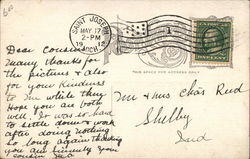 SAINT JOSEPH
MAY 17
2-PM
1912
MICH.
THIS SPACE FOR ADDRESS ONLY
Dear cousin
Many thanks for
the pictures & also
for your kindness
to me while there
Hope you are both
well. It was so hard
to settle down & work
after doing nothing
so long again thanking
you am sincerely your
cousin
Mr & Mrs Chas Reid
Shelby
Ind